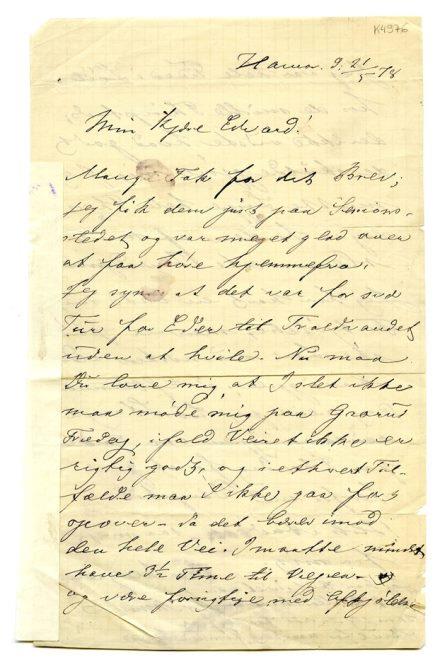 K4976
Hamar d. 21/5 78
Min Kjære Edvard!
Mange Tak for dit Brev;
jeg fik dem just paa Sesions-
stedet og var meget glad over
at faa høre hjemmefra.
Jeg synes at det var for svær
Tur for Eder til Troldvandet
uden at hvile. Nu maa
Du love mig at I slet ikke
maa møde mig paa Grorud
Fredag, ifald Veiret ikke er
rigtig godt, og i ethvert Til-
fælde maa I ikke gaa for
opover - da det bærer imod
den hele Vei. I maatte mindst
have 3½ Time til Veien
og være forsigtige med Afkjøl